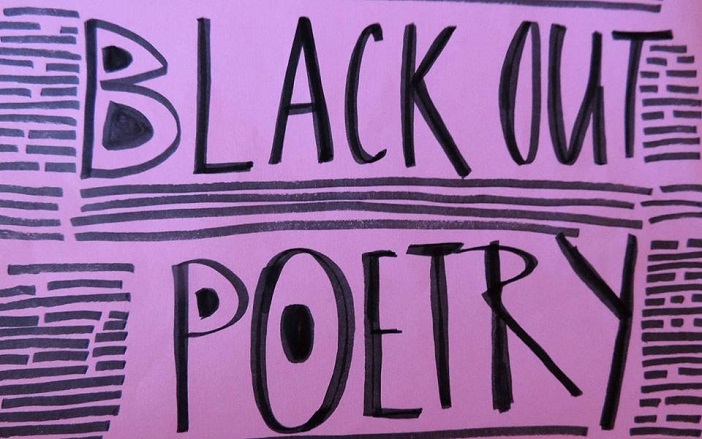 BLACK OUT
POETRY